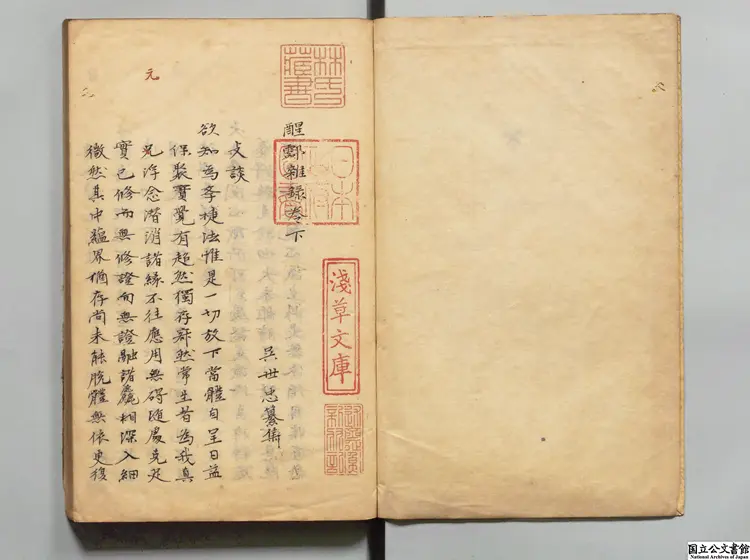 元
林氏藏書
日本政府圖書
醒雜錄卷下
淺草文庫
吳世纂輯
支談
欲知為学捷法惟是一切放下當體自呈日益
保聚實覺有超然獨存然常生者為我真
浮念潛消諸緣不往應用無碍随處充足
實已修而無修證而無證融諸麤相深入細
微然其中蘊界猶存尚未能脫體無依更復
国立公文書館
National Archives of Japan